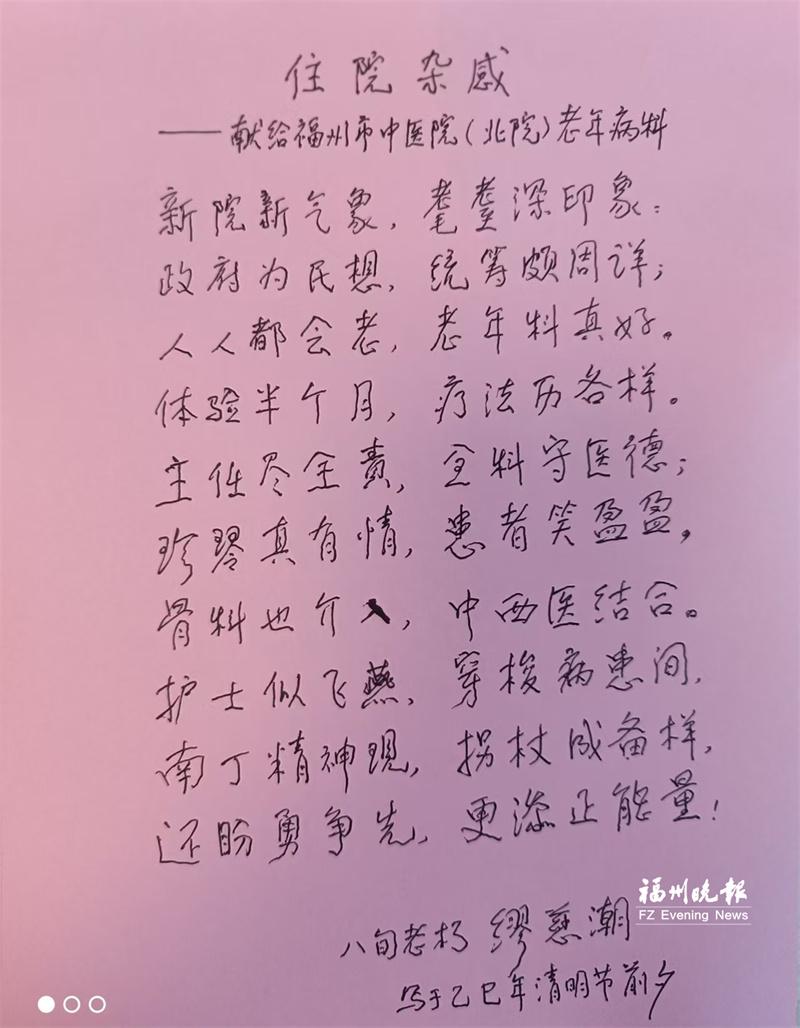 住院杂感
——献给福州市中医院(北院)老年病科
新院新气象，耄耋深印象：
政府为民想，统筹颇周详；
人人都会老，老年科真好。
体验半个月，疗法历各样。
主任尽全责，全科守医德；
珍琴真有情，患者笑盈盈，
骨科也介入，中西医结合。
护士似飞燕，穿梭病患间，
南丁精神现，拐杖成备样，
还盼勇争先，更添正能量！
福州晚报
FZ Evening News
八旬老朽 缪慈潮
写于乙巳年清明节前夕